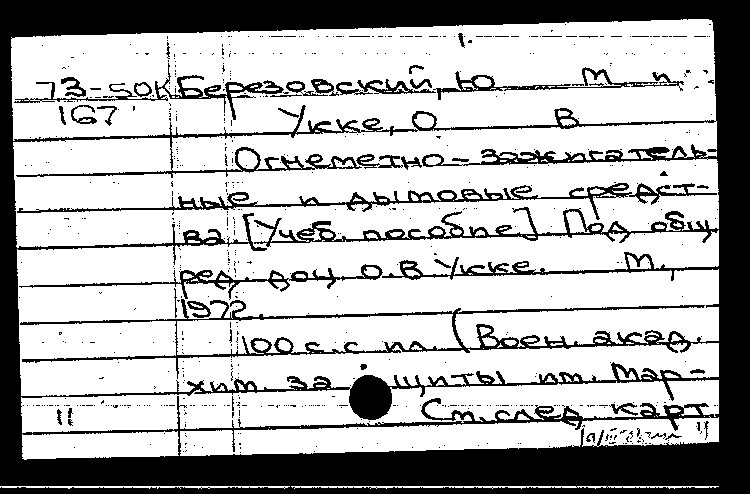 1.
73-50К Березовский, Ю М и
167 Укке, О В
Огнеметно-зажигатель-
ные и дымовые средст-
ва. [Учеб. пособие]. Под общ.
ред. доц. О.В Укке. М.,
1972.
100 с. с ил. (Воен. акад.
хим. за щиты им. Мар-
11 См. след карт